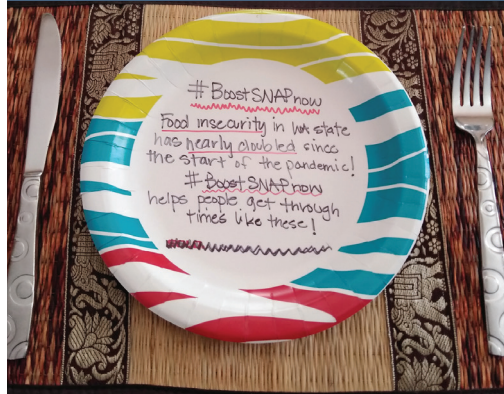 #BoostSNAPnow
Food insecurity in our state
has nearly doubled since
the start of the pandemic!
#BoostSNAPnow
helps people get through
times like these!